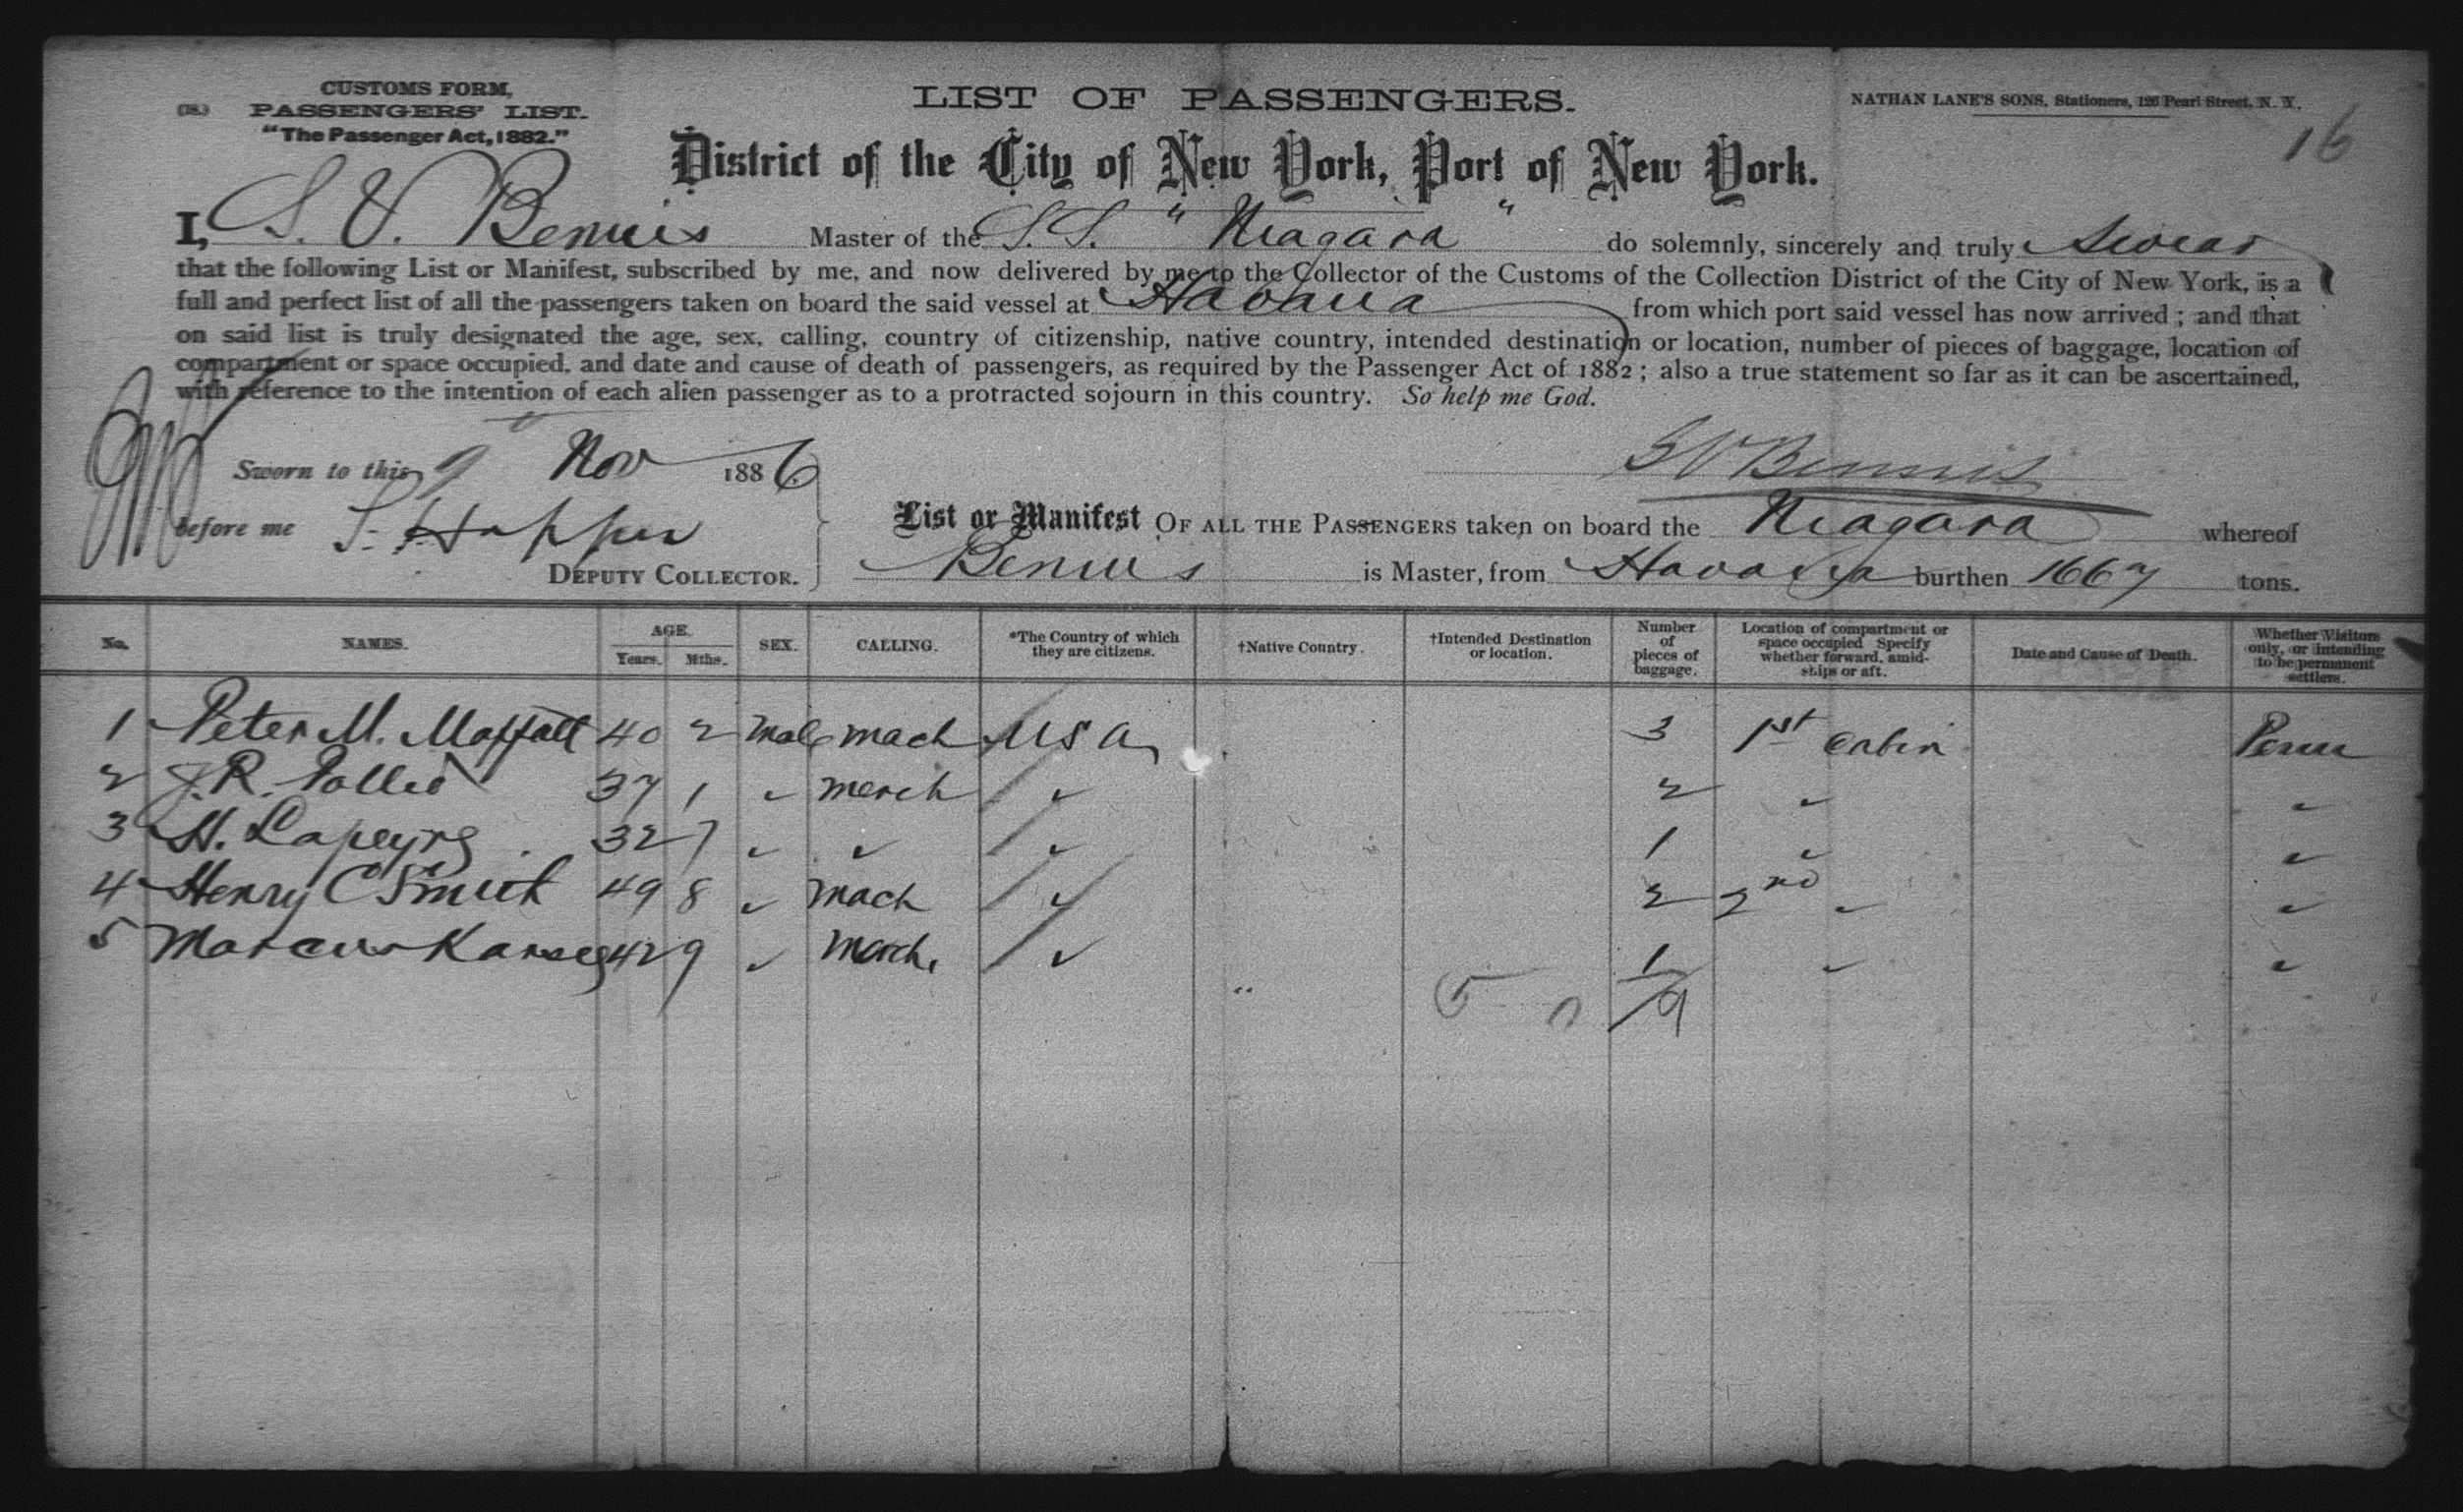 CUSTOMS FORM,
(18.) PASSENGERS' LIST.
"The Passenger Act, 1882."
LIST OF PASSENGERS.
NATHAN LANE'S SONS, Stationers, 126 Pearl Street, N. Y.
16
District of the City of New York, Port of New York.
I, S. V. Bennis Master of the S.S. "Niagara" do solemnly, sincerely and truly Swear
that the following List or Manifest, subscribed by me, and now delivered by me to the Collector of the Customs of the Collection District of the City of New York, is a
full and perfect list of all the passengers taken on board the said vessel at Havana from which port said vessel has now arrived; and that
on said list is truly designated the age, sex, calling, country of citizenship, native country, intended destination or location, number of pieces of baggage, location of
compartment or space occupied, and date and cause of death of passengers, as required by the Passenger Act of 1882; also a true statement so far as it can be ascertained,
with reference to the intention of each alien passenger as to a protracted sojourn in this country. So help me God.
S V Bennis
Sworn to this 9 Nov 1886
before me
DEPUTY COLLECTOR.
List or Manifest OF ALL THE PASSENGERS taken on board the Niagara whereof
Bennis is Master, from Havana burthen 1667 tons.
No. NAMES. AGE. Years. Mths. SEX. CALLING. *The Country of which they are citizens. †Native Country. †Intended Destination or location. Number of pieces of baggage. Location of compartment or space occupied Specify whether forward, amidships or aft. Date and Cause of Death. Whether Visitors only, or intending to be permanent settlers.
1 Peter M. Moffatt 40 2 Male mach USA 3 1st Cabin Perm
2 J. R. 37 1 " merch " 2 " "
3 H. Lapeyre 32 7 " " " 1 " "
4 Henry C Smith 49 8 " mach " 2 2nd " "
5 Marcus 42 9 " merch. " 1 " "
5 0 9